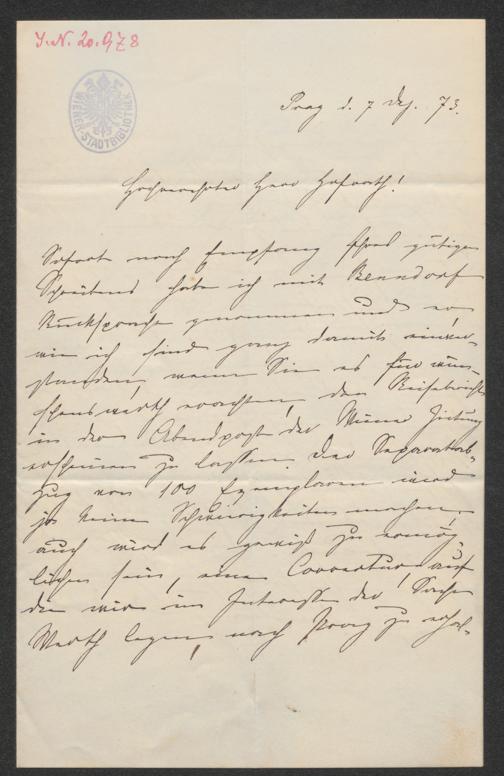 J.N. 20.978
WIENER-STADTBIBLIOTHEK
Prag d. 7 Dez. 73.
Hochverehrter Herr Hofrath!
Sofort nach Empfang Ihres gütigen
Schreibens habe ich mit Benndorf
Rücksprache genommen und er
wie ich sind ganz damit einver-
standen, wenn Sie es für wün-
schenswerth erachten, den Reisebericht
in der Abendpost der Wiener Zeitung
erscheinen zu lassen. Der Separatab-
zug von 100 Exemplaren wird
ja keine Schwierigkeiten machen,
auch wird es gewiß zu ermög-
lichen sein, eine Correctur, auf
die wir im Interesse der Sache
Werth legen, nach Prag zu erhal-